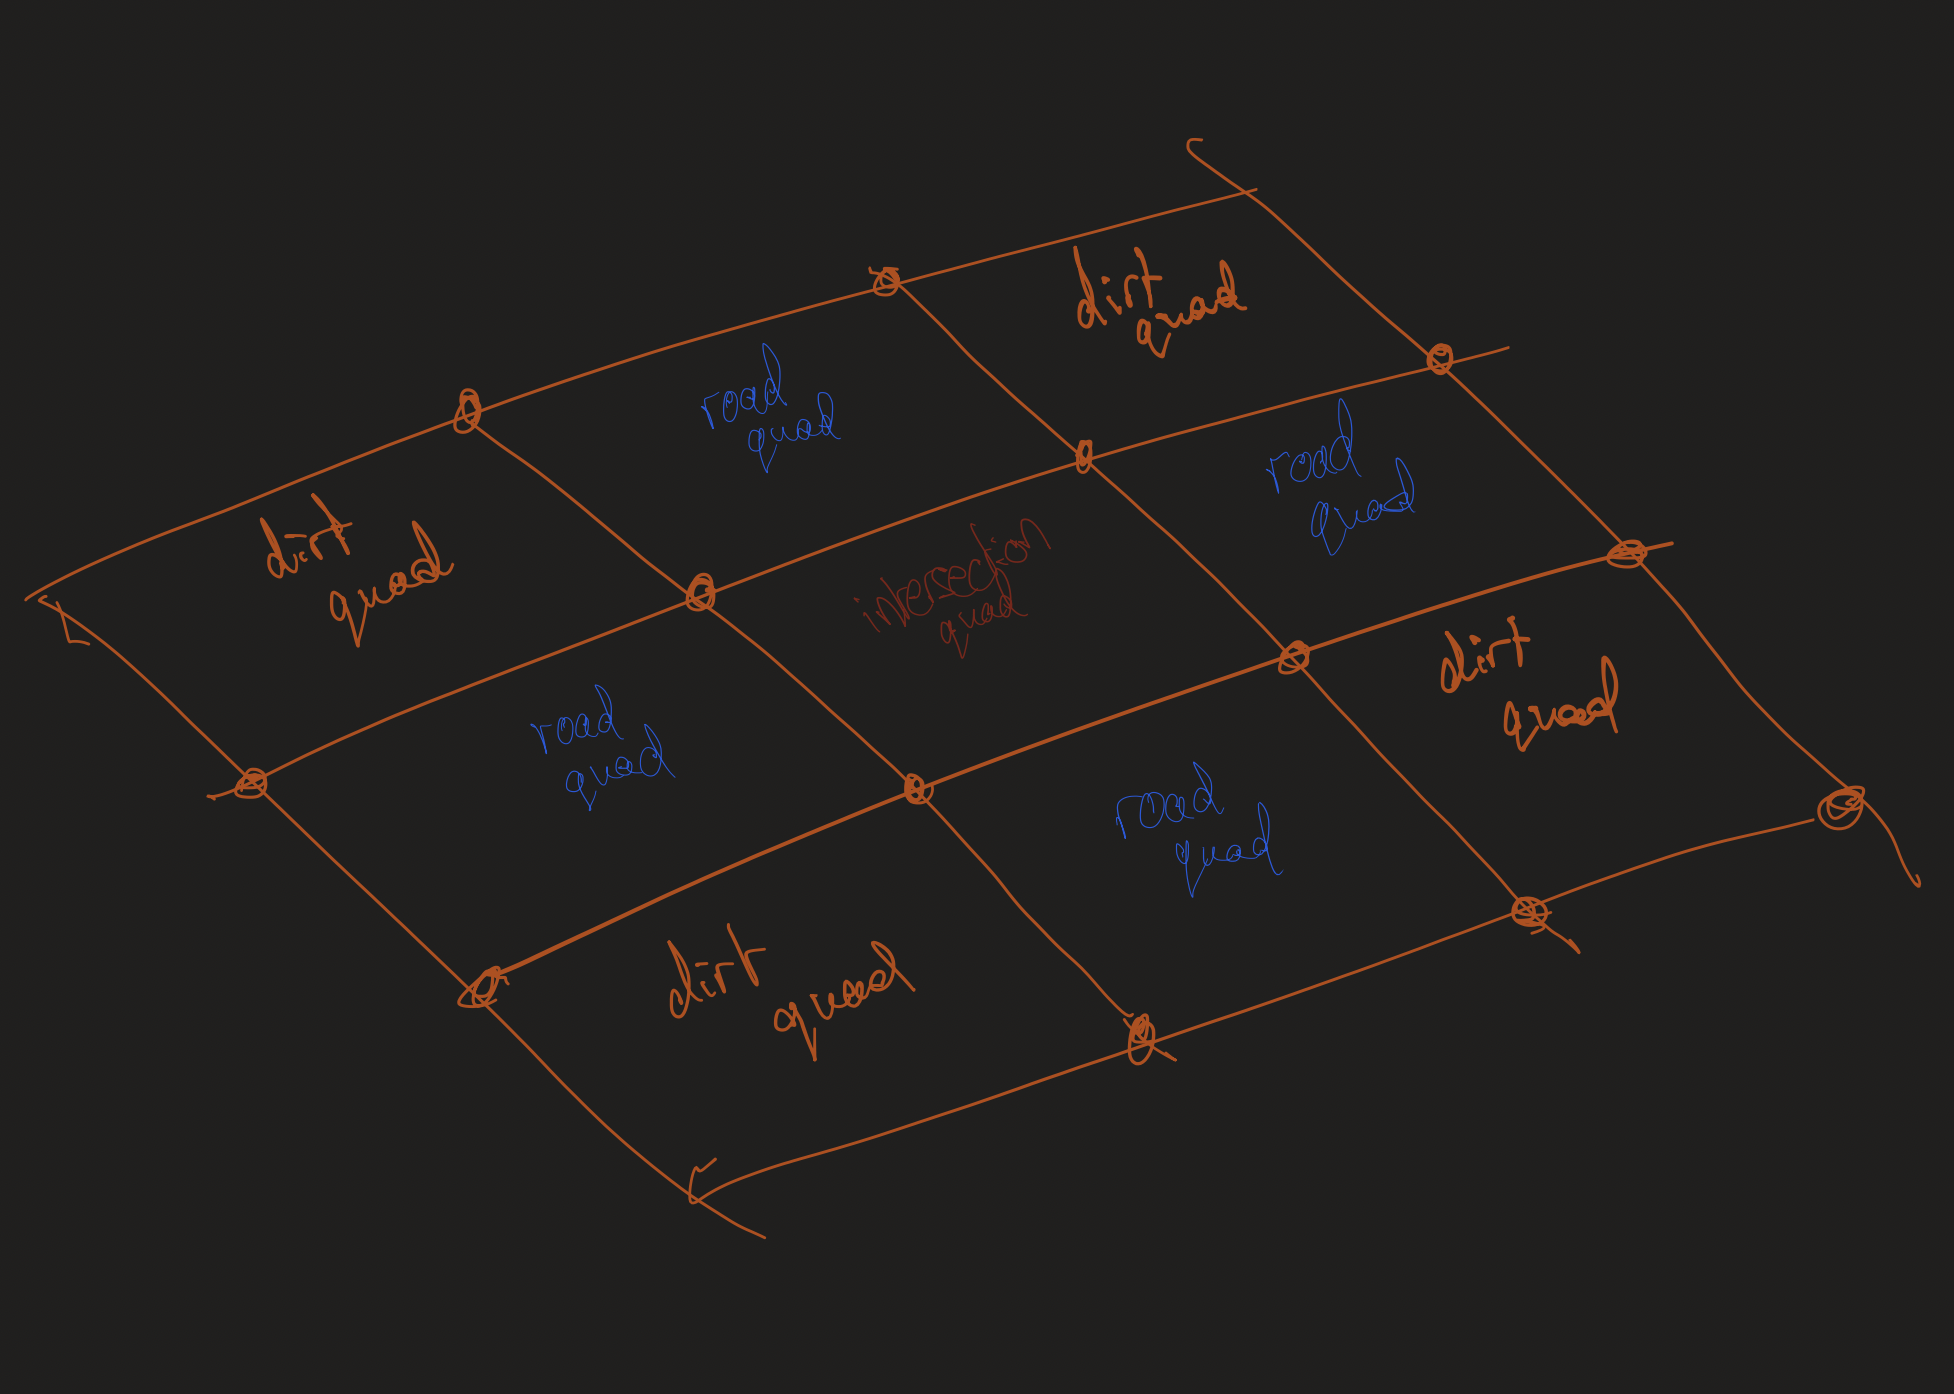 dirt
quad
road
quad
dirt
quad
road
quad
intersection
quad
road
quad
dirt
quad
road
quad
dirt
quad